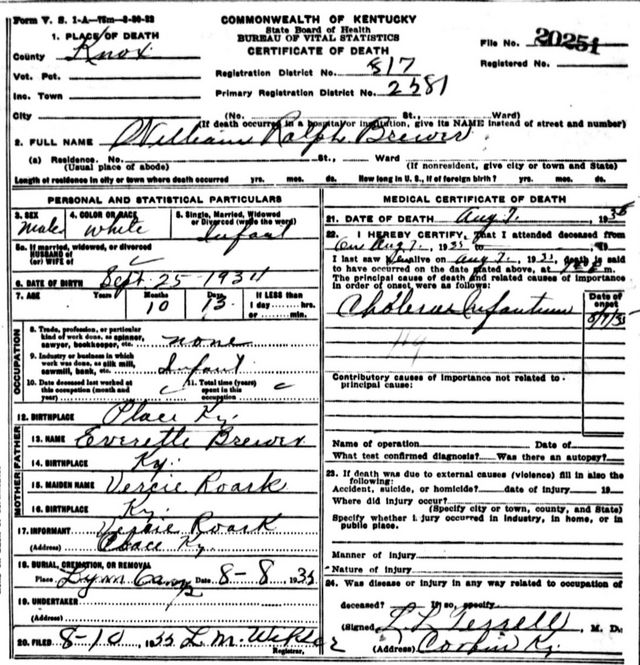 Form V. S. 1-A
COMMONWEALTH OF KENTUCKY
State Board of Health
BUREAU OF VITAL STATISTICS
CERTIFICATE OF DEATH
File No. 20251
Registered No.
1. PLACE OF DEATH
County Knox
Vot. Pct.
Inc. Town
City
Registration District No. 817
Primary Registration District No. 2581
(No. St., Ward)
(If death occurred in a hospital or institution, give its NAME instead of street and number)
2. FULL NAME William Ralph Brewer
(a) Residence. No. St., Ward
(Usual place of abode) (If nonresident, give city or town and State)
Length of residence in city or town where death occurred yrs. mos. ds. How long in U. S., if of foreign birth? yrs. mos. ds.
PERSONAL AND STATISTICAL PARTICULARS
3. SEX Male
4. COLOR OR RACE White
5. Single, Married, Widowed or Divorced (write the word) Infant
5a. If married, widowed, or divorced
HUSBAND of
(or) WIFE of
6. DATE OF BIRTH Sept. 25 - 1934
7. AGE Years Months 10 Days 13 If LESS than 1 day hrs. or min.
OCCUPATION
8. Trade, profession, or particular kind of work done, as spinner, sawyer, bookkeeper, etc. none
9. Industry or business in which work was done, as silk mill, sawmill, bank, etc. Infant
10. Date deceased last worked at this occupation (month and year)
11. Total time (years) spent in this occupation
12. BIRTHPLACE Place Ky.
FATHER
13. NAME Everette Brewer
14. BIRTHPLACE Ky.
MOTHER
15. MAIDEN NAME Versie Roark
16. BIRTHPLACE Ky.
17. INFORMANT Versie Roark
(Address) Place Ky.
18. BURIAL, CREMATION, OR REMOVAL
Place Lynn Camp Date 8-8 1935
19. UNDERTAKER
(Address)
20. FILED 8-10, 1935 L. M.
Registrar.
MEDICAL CERTIFICATE OF DEATH
21. DATE OF DEATH Aug 7, 1935
22. I HEREBY CERTIFY, That I attended deceased from
on Aug 7, 1935 to 19
I last saw alive on Aug 7, 1935, death is said
to have occurred on the date stated above, at m.
The principal cause of death and related causes of importance
in order of onset were as follows:
Date of onset
Cholera Infantum 8/7/35
119
Contributory causes of importance not related to
principal cause:
Name of operation Date of
What test confirmed diagnosis? Was there an autopsy?
23. If death was due to external causes (violence) fill in also the
following:
Accident, suicide, or homicide? date of injury 19
Where did injury occur?
(Specify city or town, county, and State)
Specify whether injury occurred in industry, in home, or in
public place.
Manner of injury
Nature of injury
24. Was disease or injury in any way related to occupation of
deceased? If so, specify
(Signed) L L Terrell, M. D.
(Address) Corbin Ky.